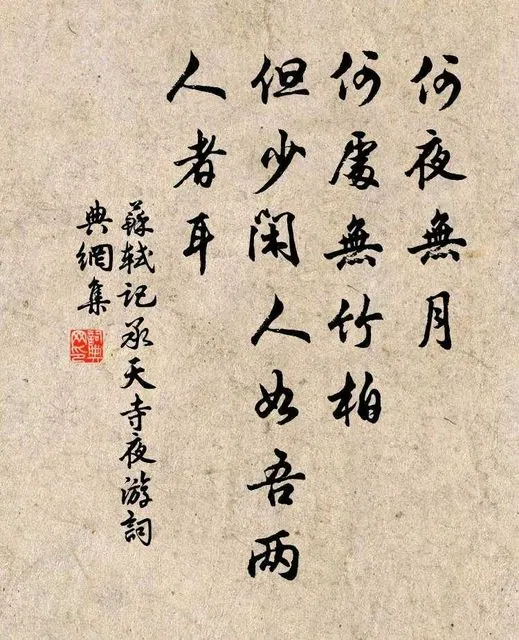 何夜無月
何處無竹柏
但少閑人如吾兩
人者耳
蘇軾記承天寺夜游詞
典網集
詞典網印